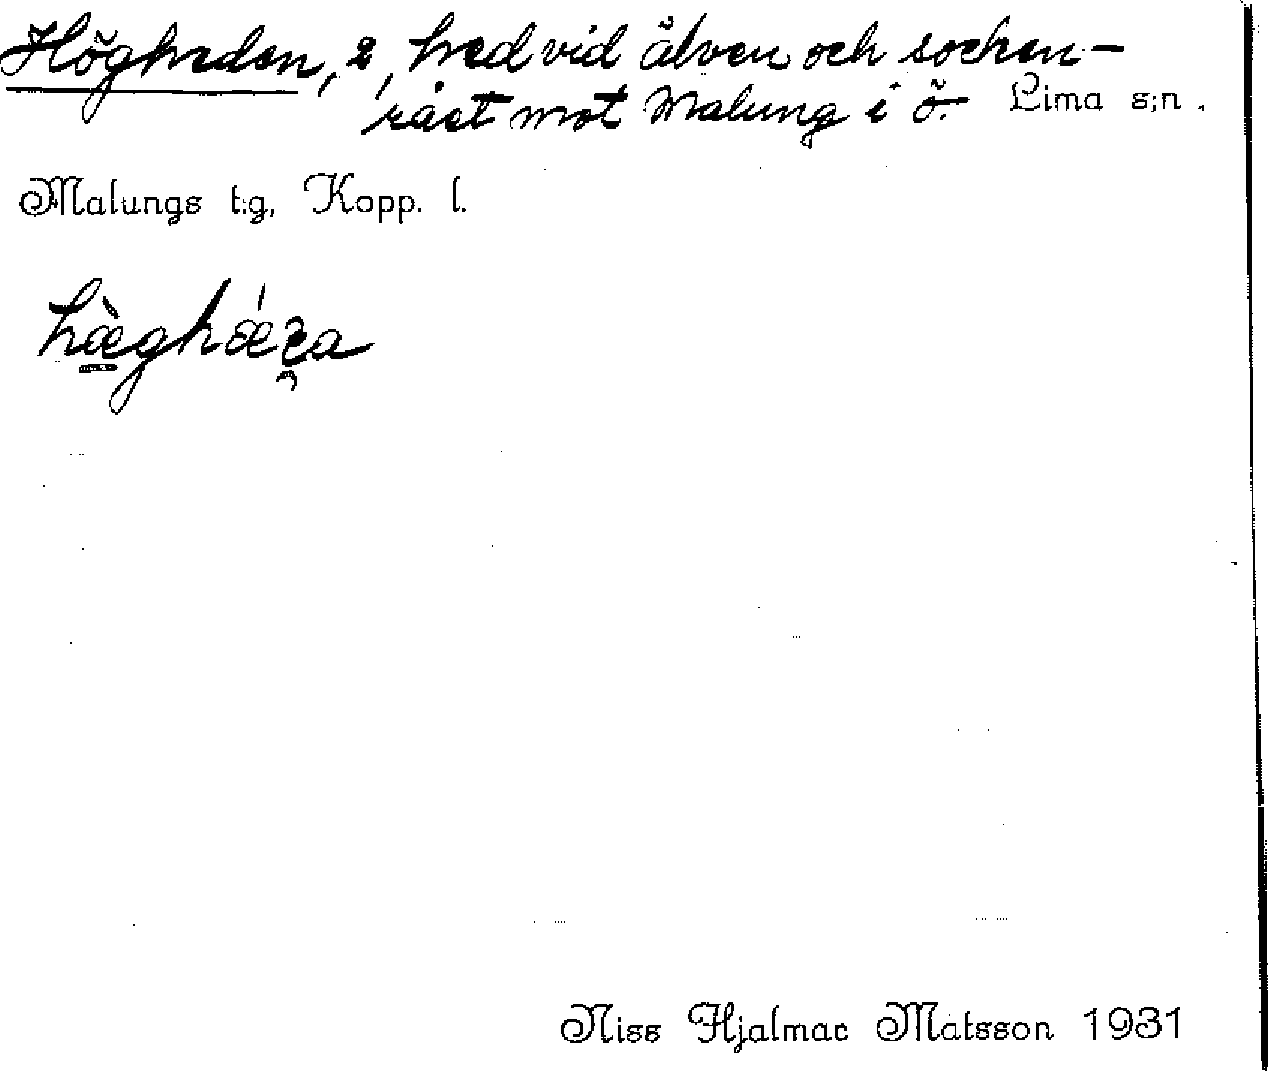 Högheden, 2, hed vid älven och socken-
råst mot Malung i ö. Lima s:n.
Malungs t:g, Kopp. l.
Niss Hjalmar Matsson 1931